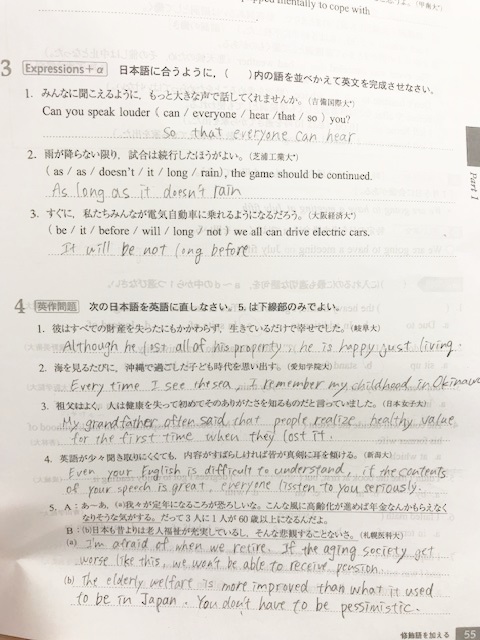 pped mentally to cope with
3 Expressions+α 日本語に合うように，（　）内の語を並べかえて英文を完成させなさい．
1. みんなに聞こえるように，もっと大きな声で話してくれませんか。（吉備国際大*）
Can you speak louder ( can / everyone / hear / that / so ) you?
So that everyone can hear
2. 雨が降らない限り，試合は続行したほうがよい。（芝浦工業大*）
( as / as / doesn't / it / long / rain ), the game should be continued.
As long as it doesn't rain
3. すぐに，私たちみんなが電気自動車に乗れるようになるだろう。（大阪経済大*）
( be / it / before / will / long / not ) we all can drive electric cars.
It will be not long before
Part 1
4 英作問題 次の日本語を英語に直しなさい。5. は下線部のみでよい．
1. 彼はすべての財産を失ったにもかかわらず，生きているだけで幸せでした。（岐阜大）
Although he lost all of his property, he is happy just living.
2. 海を見るたびに，沖縄で過ごした子ども時代を思い出す。（愛知学院大）
Every time I see thesea, I remember my childhood in Okinawa
3. 祖父はよく，人は健康を失って初めてそのありがたさを知るものだと言っていました。（日本女子大）
My grandfather often said that people realize healthy value
for the first time when they lost it.
4. 英語が少々聞き取りにくくても，内容がすばらしければ皆が真剣に耳を傾ける。（新潟大）
Even your English is difficult to understand, if the contents
of your speech is great, everyone lissten to you seriously.
5. A：あ～あ，(a)我々が定年になるころが恐ろしいな。こんな風に高齢化が進めば年金なんかもらえなく
なりそうな気がする。だって3人に1人が60歳以上になるんだよ。
B：(b)日本も昔よりは老人福祉が充実しているし，そんな悲観することないさ。（札幌医科大）
(a) I'm afraid of when we retire. If the aging society get
worse like this, we won't be able to receive pension.
(b) The elderly welfare is more improved than what it used
to be in Japan. You don't have to be pessimistic.
修飾語を加える 55